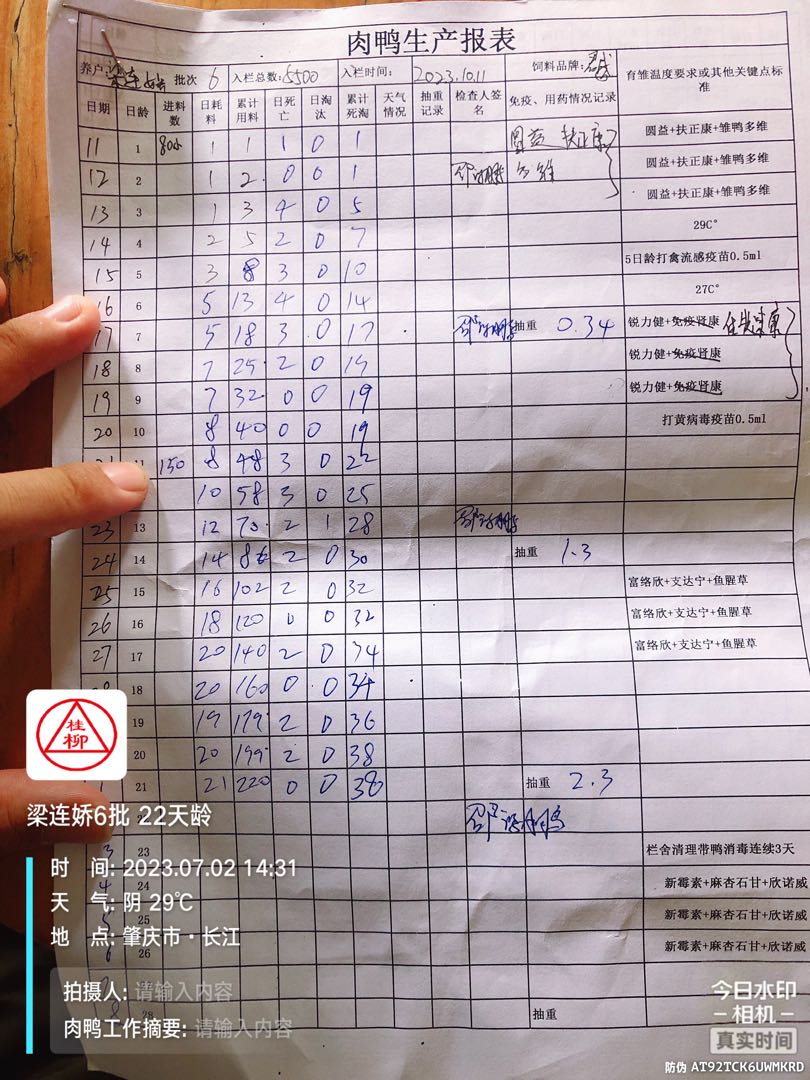 肉鸭生产报表
养户: 梁连娇 批次 6 入栏总数: 5500 入栏时间: 2023.10.11 饲料品牌: 育雏温度要求或其他关键点标准
日期 日龄 进料数 日耗料 累计用料 日死亡 日淘汰 累计死淘 天气情况 抽重记录 检查人签名 免疫、用药情况记录
11 1 80 1 1 1 0 1 圆益 扶正康 圆益+扶正康+雏鸭多维
12 2 1 2 0 0 1 多维 圆益+扶正康+雏鸭多维
13 3 1 3 4 0 5 圆益+扶正康+雏鸭多维
14 4 2 5 2 0 7 29C°
15 5 3 8 3 0 10 5日龄打禽流感疫苗0.5ml
16 6 5 13 4 0 14 27C°
17 7 5 18 3 0 17 抽重 0.34 锐力健+免疫肾康
18 8 7 25 2 0 19 锐力健+免疫肾康
19 9 7 32 0 0 19 锐力健+免疫肾康
20 10 8 40 0 0 19 打黄病毒疫苗0.5ml
150 8 48 3 0 22
10 58 3 0 25
23 13 12 70 2 1 28
24 14 14 86 2 0 30 抽重 1.3
25 15 16 102 2 0 32 富络欣+支达宁+鱼腥草
26 16 18 120 0 0 32 富络欣+支达宁+鱼腥草
27 17 20 140 2 0 34 富络欣+支达宁+鱼腥草
18 20 160 0 0 34
19 19 179 2 0 36
20 20 199 2 0 38
21 21 220 0 0 38 抽重 2.3
3 23 栏舍清理带鸭消毒连续3天
4 24 新霉素+麻杏石甘+欣诺威
5 25 新霉素+麻杏石甘+欣诺威
6 26 新霉素+麻杏石甘+欣诺威
28 抽重
桂柳
梁连娇6批 22天龄
时 间: 2023.07.02 14:31
天 气: 阴 29℃
地 点: 肇庆市·长江
拍摄人: 请输入内容
肉鸭工作摘要: 请输入内容
今日水印
相机
真实时间
防伪 AT92TCK6UWMKRD